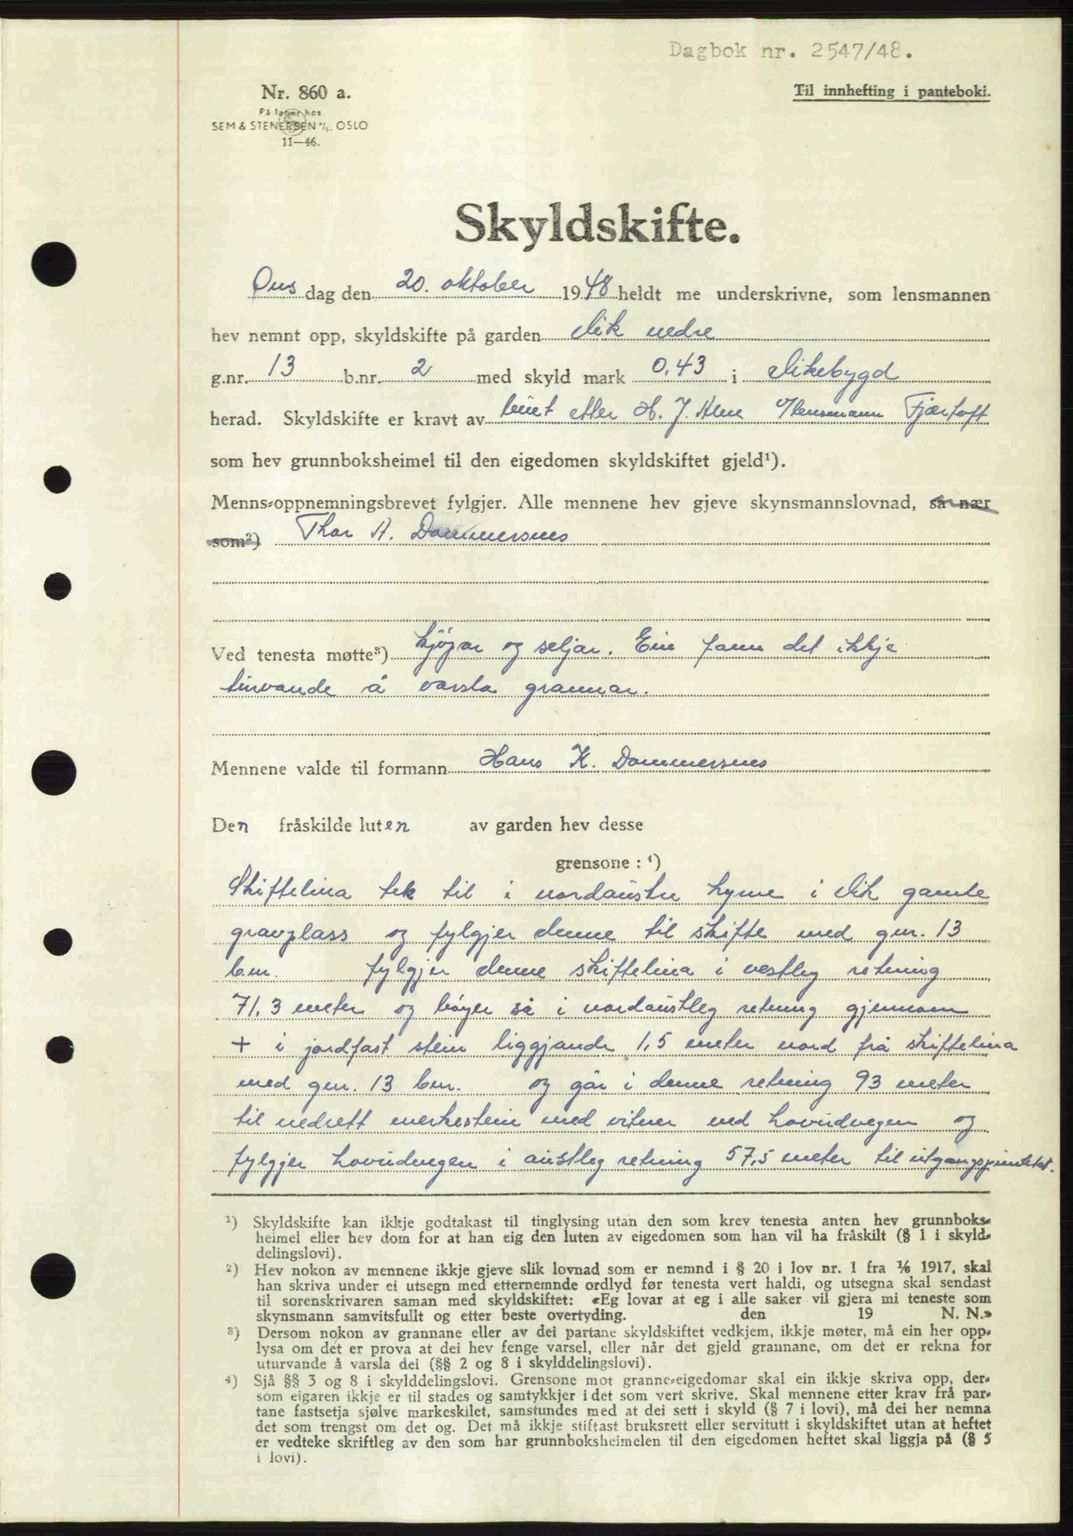 Dagbok nr. 2547/48.
Nr. 860 a.
Til innhefting i panteboki.
På lager hos
SEM & STENERSEN A/S. OSLO
11—46.
Skyldskifte.
Ons dag den 20. oktober 1948 heldt me underskrivne, som lensmannen
hev nemnt opp, skyldskifte på garden Vik nedre
g.nr. 13 b.nr. 2 med skyld mark 0,43 i Vikebygd
herad. Skyldskifte er kravt av buet etter H. J. v/lensmann Fjærtoft
som hev grunnboksheimel til den eigedomen skyldskiftet gjeld¹).
Menns-oppnemningsbrevet fylgjer. Alle mennene hev gjeve skynsmannslovnad, så nær
som²) Thor A. Dommersnes
Ved tenesta møtte³) kjøpar og seljar. Ein fann det ikkje
turvande å varsla grannar.
Mennene valde til formann Hans K. Dommersnes
Den fråskilde luten av garden hev desse
grensone : ⁴)
Skiftelina tek til i nordaustre hyrne i Vik gamle
gravplass og fylgjer denne til skifte med gnr. 13
bnr. fylgjer denne skiftelina i vestleg retning
71,3 meter og bøyer så i nordaustleg retning gjennom
+ i jordfast stein liggjande 1,5 meter nord frå skiftelina
med gnr. 13 bnr. og går i denne retning 93 meter
til nedsett merkestein med vitner ved hovudvegen og
fylgjer hovudvegen i austleg retning 57,5 meter til utgangspunktet.
¹) Skyldskifte kan ikkje godtakast til tinglysing utan den som krev tenesta anten hev grunnboks-
heimel eller hev dom for at han eig den luten av eigedomen som han vil ha fråskilt (§ 1 i skyld-
delingslovi).
²) Hev nokon av mennene ikkje gjeve slik lovnad som er nemnd i § 20 i lov nr. 1 fra 1/6 1917, skal
han skriva under ei utsegn med etternemnde ordlyd før tenesta vert haldi, og utsegna skal sendast
til sorenskrivaren saman med skyldskiftet: «Eg lovar at eg i alle saker vil gjera mi teneste som
skynsmann samvitsfullt og etter beste overtyding. den 19 N. N.»
³) Dersom nokon av grannane eller av dei partane skyldskiftet vedkjem, ikkje møter, må ein her opp-
lysa om det er prova at dei hev fenge varsel, eller når det gjeld grannane, om det er rekna for
uturvande å varsla dei (§§ 2 og 8 i skylddelingslovi).
⁴) Sjå §§ 3 og 8 i skylddelingslovi. Grensone mot granne-eigedomar skal ein ikkje skriva opp, der-
som eigaren ikkje er til stades og samtykkjer i det som vert skrive. Skal mennene etter krav frå par-
tane fastsetja sjølve markeskilet, samstundes med at dei sett i skyld (§ 7 i lovi), må dei her nemna
det som trengst om det og. Det må ikkje stiftast bruksrett eller servitutt i skyldskiftet utan at heftet
er vedteke skriftleg av den som har grunnboksheimelen til den eigedomen heftet skal liggja på (§ 5
i lovi).